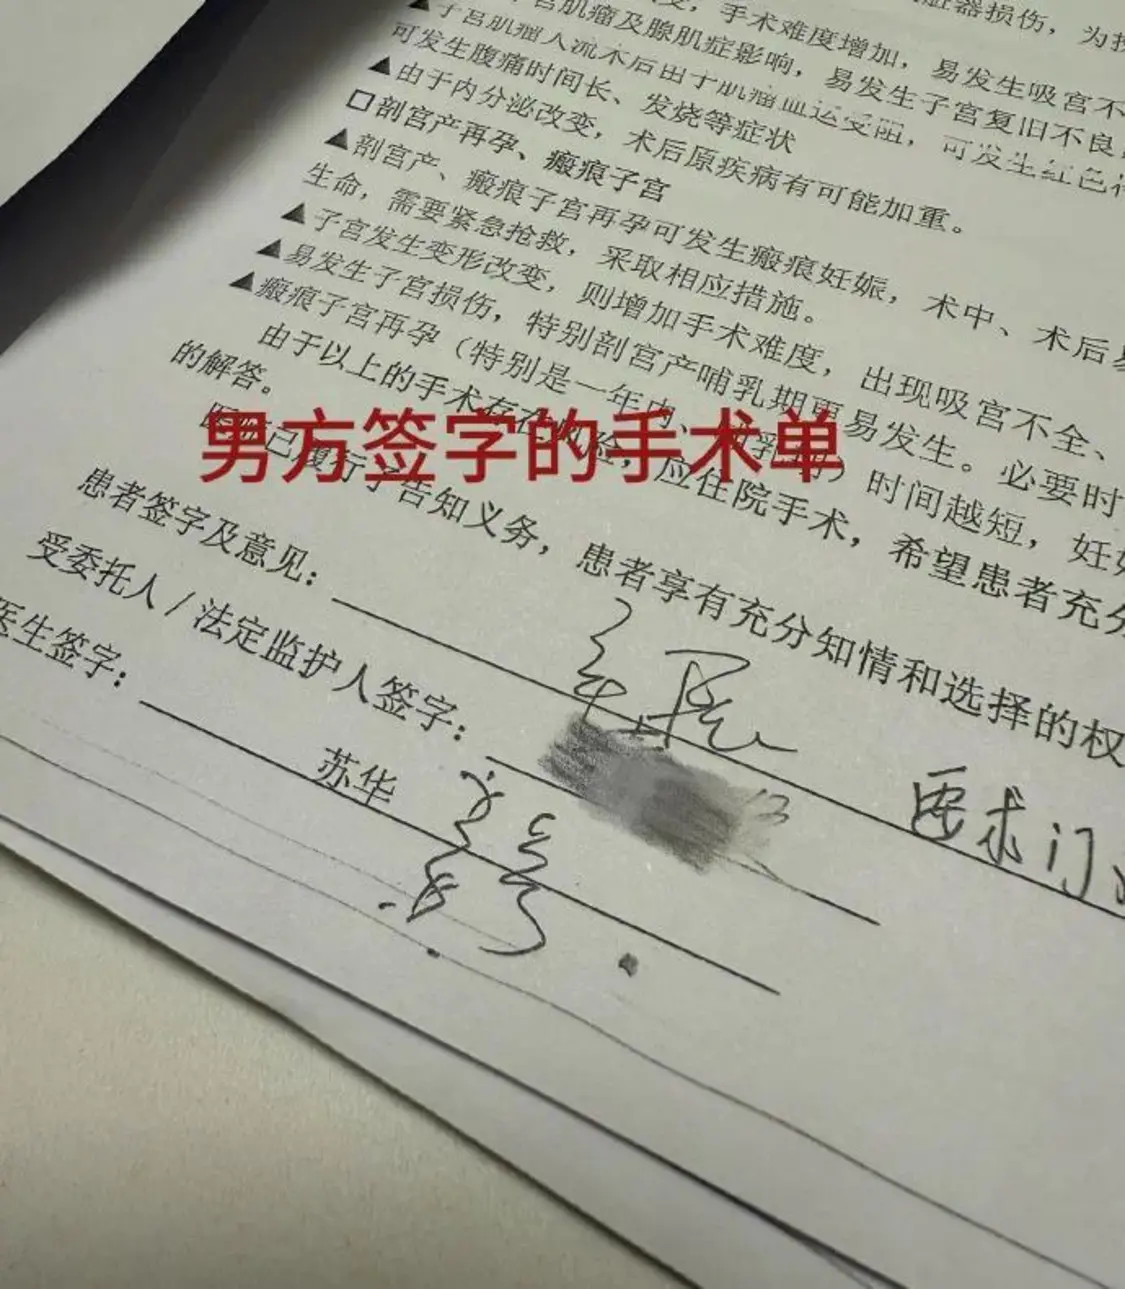 脏器损伤，为
手术难度增加，易发生吸宫不
宫肌瘤及腺肌症影响，易发生子宫复旧不良
▲子宫肌瘤人流术后由于肌瘤血运受阻，可发生红色
可发生腹痛时间长、发烧等症状
▲由于内分泌改变，术后原疾病有可能加重。
□剖宫产再孕、瘢痕子宫
▲剖宫产、瘢痕子宫再孕可发生瘢痕妊娠，术中、术后
生命，需要紧急抢救，采取相应措施。
▲子宫发生变形改变，则增加手术难度，出现吸宫不全、
▲易发生子宫损伤，特别剖宫产哺乳期更易发生。必要时
▲瘢痕子宫再孕（特别是一年内、）时间越短，妊
由于以上的手术存在风险，应住院手术，希望患者充分
的解答。
已履行了告知义务，患者享有充分知情和选择的权
男方签字的手术单
患者签字及意见：
要求门
受委托人/法定监护人签字：
医生签字：
苏华